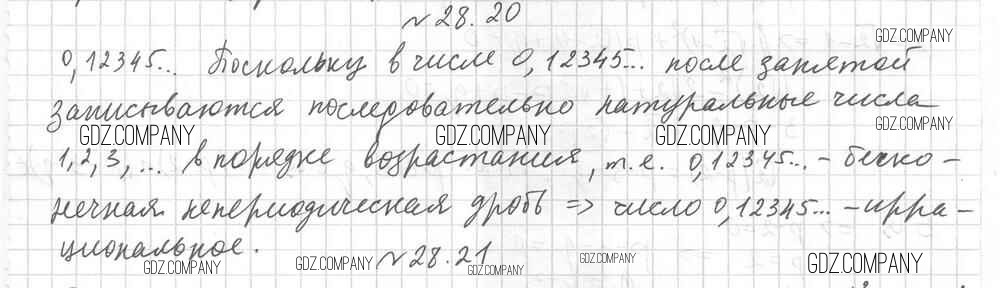 № 28.20
GDZ.COMPANY
0,12345... Поскольку в числе 0,12345... после запятой
записываются последовательно натуральные числа
GDZ.COMPANY GDZ.COMPANY GDZ.COMPANY GDZ.COMPANY
1,2,3,... в порядке возрастания, т.е. 0,12345... - беско-
нечная непериодическая дробь => число 0,12345... - ирра-
циональное.
№ 28.21
GDZ.COMPANY GDZ.COMPANY GDZ.COMPANY GDZ.COMPANY GDZ.COMPANY